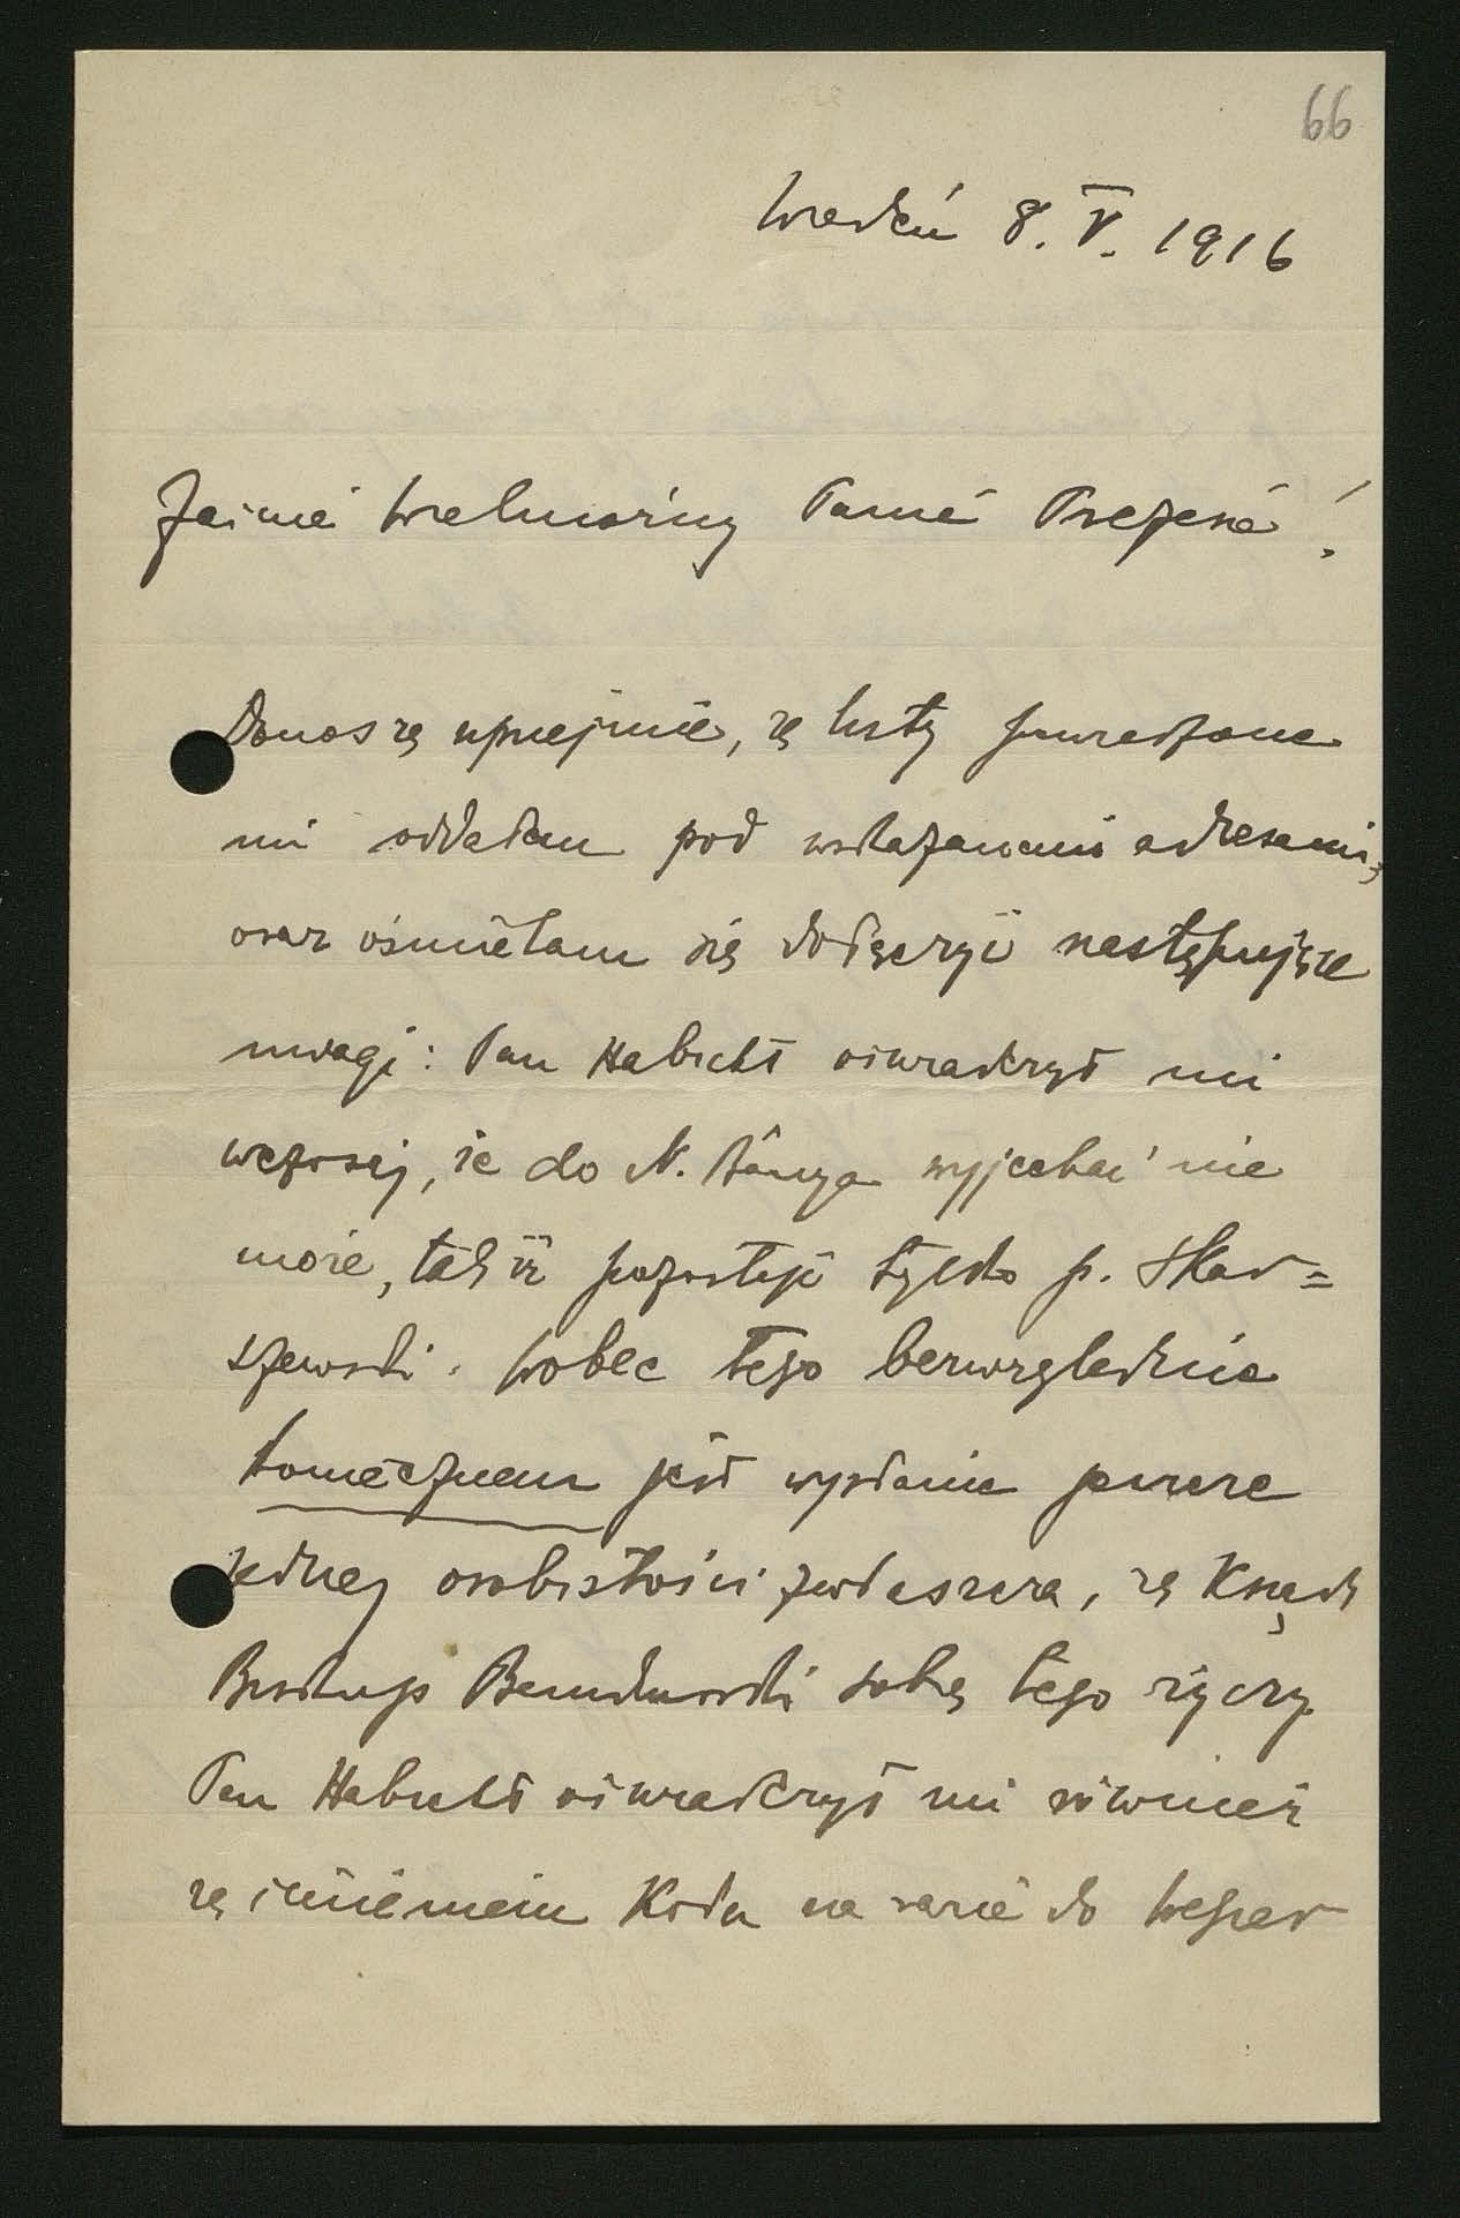 66
Wiedeń 8. V. 1916
Jaśnie Wielmożny Panie Prezesie!
Donoszę uprzejmie, że listy powierzone
mi oddałem pod wskazanemi adresami,
oraz ośmielam się dołączyć następujące
uwagi: Pan Habicht oświadczył mi
wczoraj, że do N. wyjechać nie
może, tak iż pozostaje tylko p. Skar=
szewski. Wobec tego bezwzględnie
koniecznem jest wysłanie jeszcze
jednej osobistości zwłaszcza, że Ksiądz
Biskup Bandurski sobie tego życzy.
Pan Habicht oświadczył mi również
że imieniem Koła na razie do Węgier